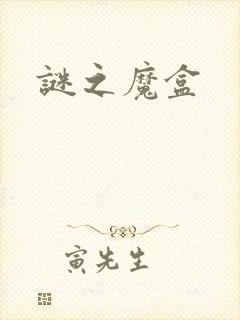 謎之魔盒
寅先生